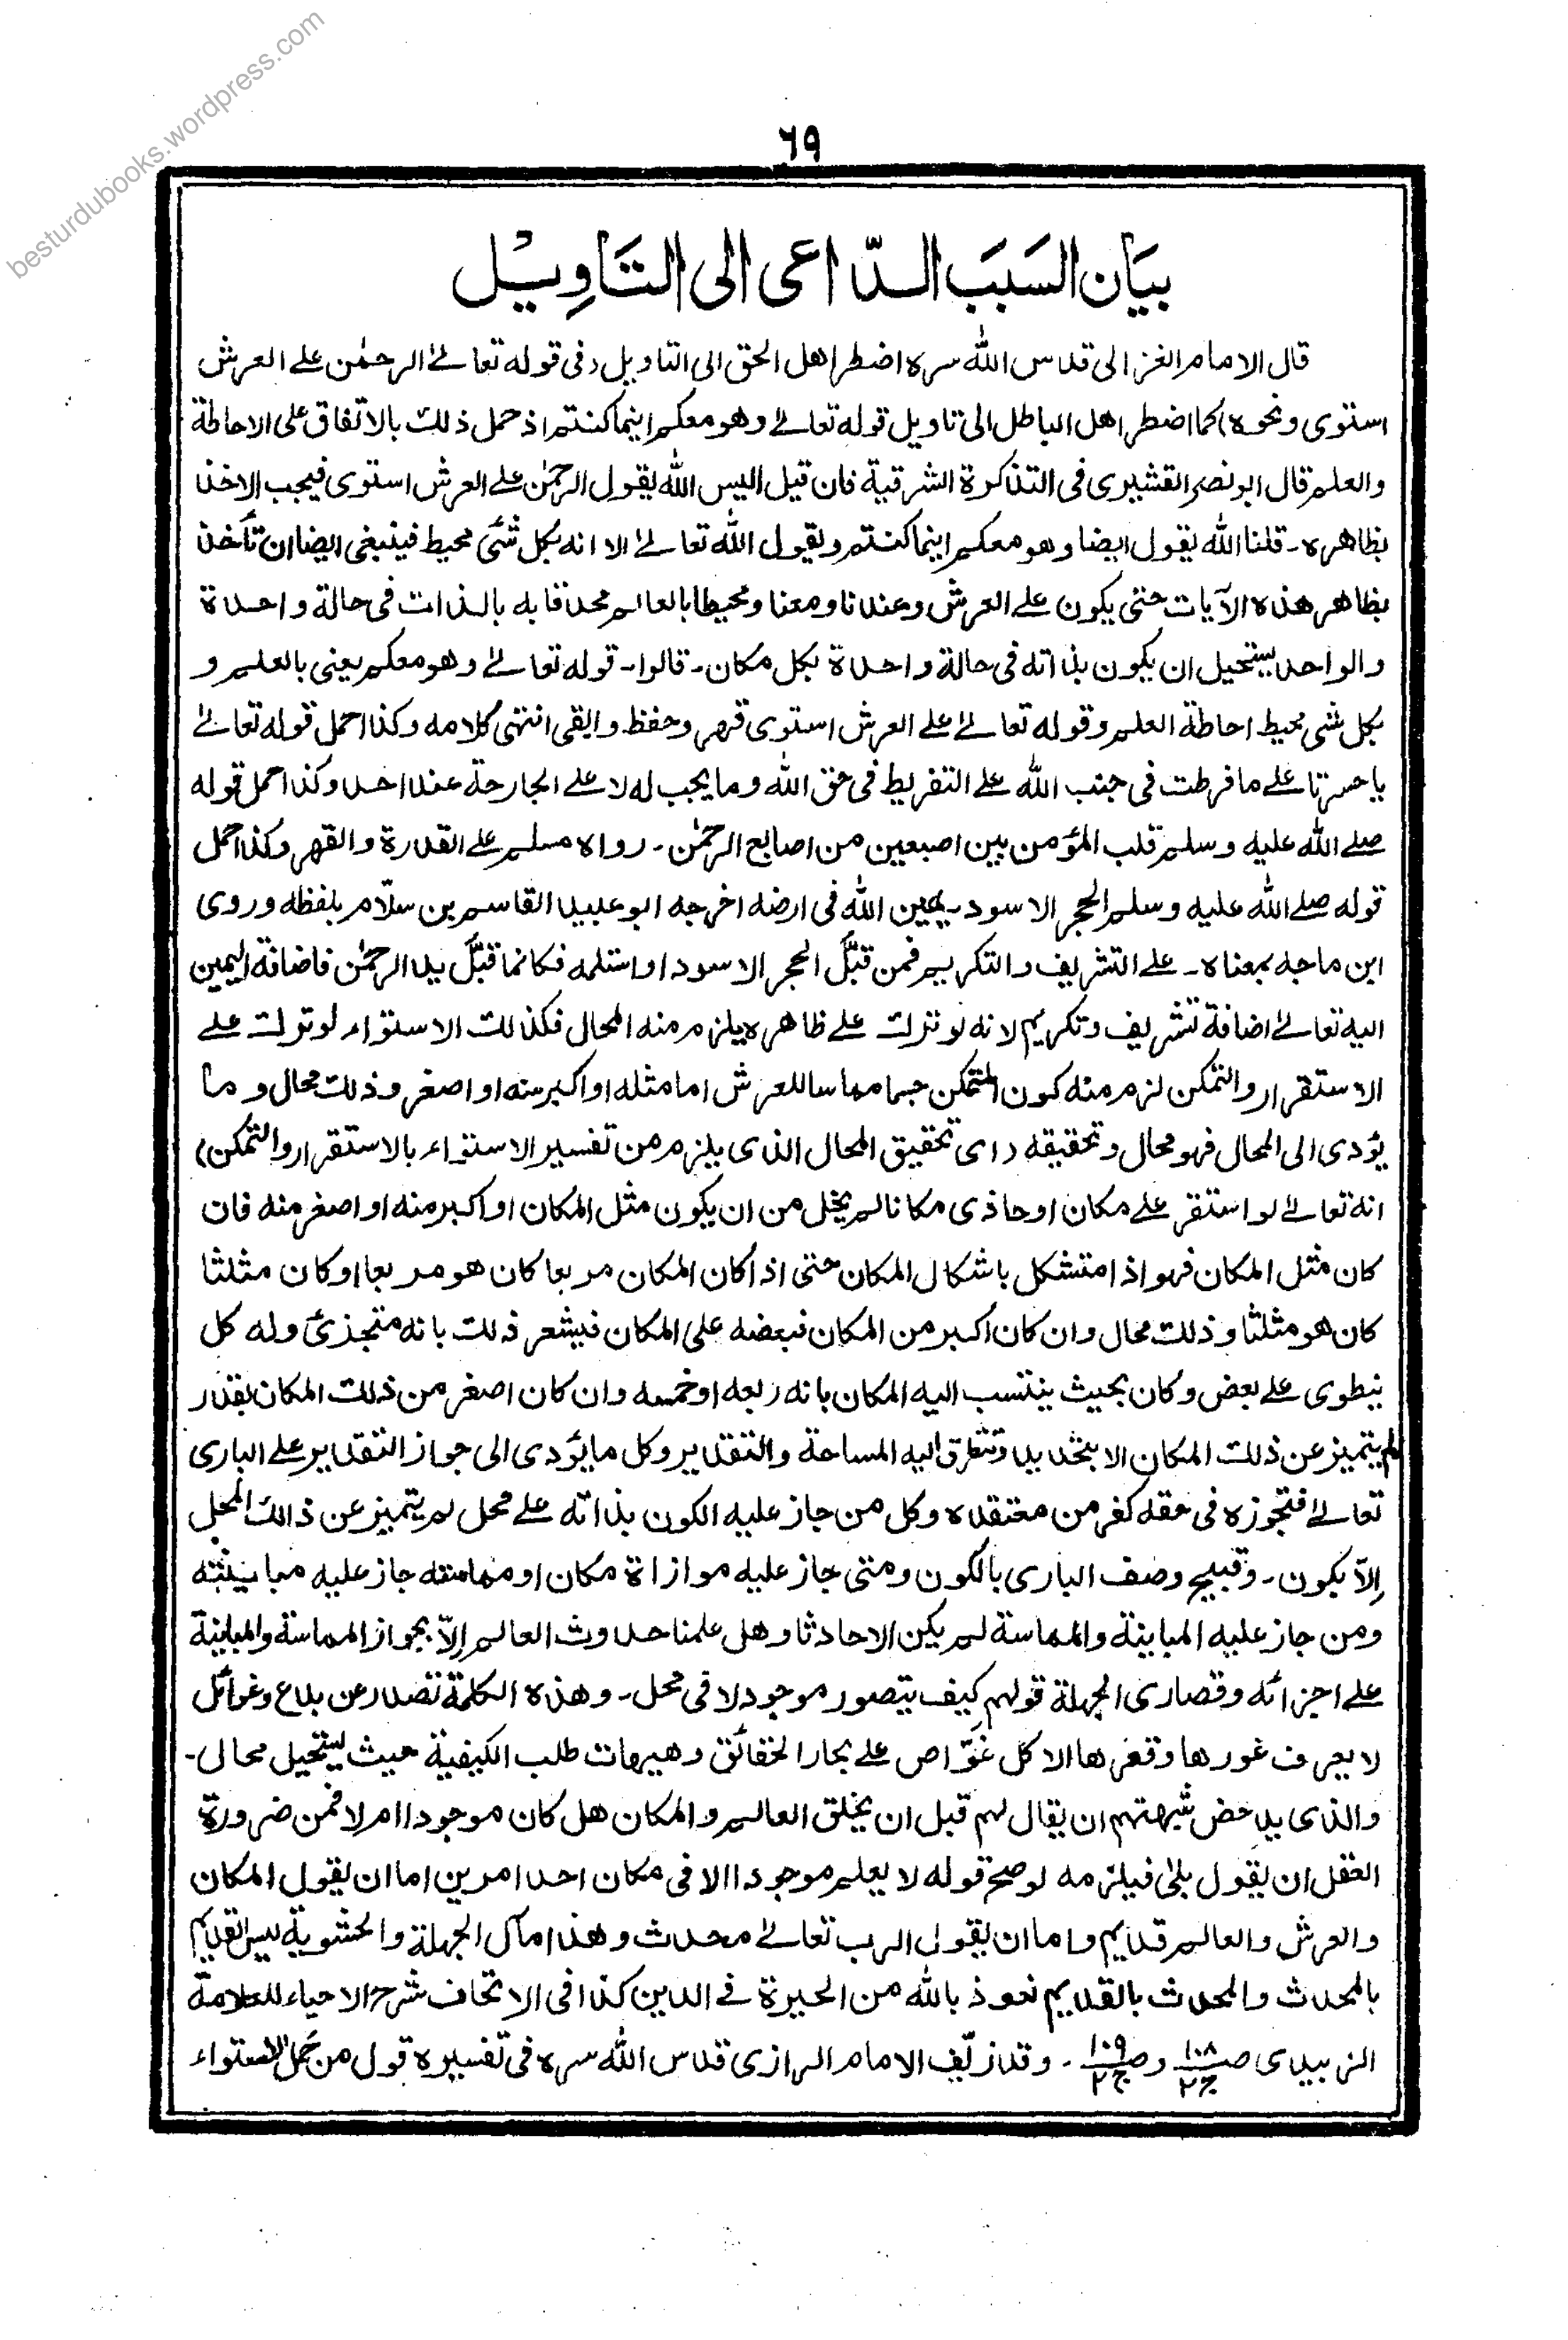 besturdubooks.wordpress.com
٦٩
بيَان السَبَب الدّاعى الى التَاوِيْل
قال الامام الغزالى قدس الله سره اضطر اهل الحق الى التاويل (فى قوله تعالےٰ الرحمٰن علے العرش
استوى ونحوه) كما اضطر اهل الباطل الى تاويل قوله تعالےٰ وهو معكم اينما كنتم اذ حمل ذلك بالاتفاق على الاحاطة
والعلم قال ابو نصر القشيرى فى التذكرة الشرقية فان قيل اليس الله يقول الرحمٰن علے العرش استوى فيجب الاخذ
بظاهره۔ قلنا الله يقول ايضا وهو معكم اينما كنتم ويقول الله تعالےٰ الا انه بكل شئ محيط فينبغى ايضا ان تأخذ
بظاهر هذه الآيات حتى يكون علے العرش وعندنا ومعنا ومحيطا بالعالم محدقا به بالذات فى حالة واحدة
والواحد يستحيل ان يكون بذاته فى حالة واحدة بكل مكان۔ قالوا۔ قوله تعالےٰ وهو معكم يعنى بالعلم و
بكل شئ محيط احاطة العلم وقوله تعالےٰ علے العرش استوى قهر وحفظ وابقى انتهى كلامه وكذا حمل قوله تعالےٰ
ياحسرتا علے ما فرطت فى جنب الله علے التفريط فى حق الله وما يجب له لا علے الجارحة عند احد وكذا حمل قوله
صلے الله عليه وسلم قلب المؤمن بين اصبعين من اصابع الرحمٰن۔ رواه مسلم علے القدرة والقهر وكذا حمل
قوله صلے الله عليه وسلم الحجر الاسود۔ يمين الله فى ارضه اخرجه ابو عبيد القاسم بن سلّام بلفظه وروى
ابن ماجه بمعناه۔ علے التشريف والتكريم فمن قبَّل الحجر الاسود او استلمه فكانما قبَّل يد الرحمٰن فاضافة اليمين
اليه تعالےٰ اضافة تشريف وتكريم لانه لو ترك علے ظاهره يلزم منه المحال فكذلك الاستواء لو ترك علے
الاستقرار والتمكن لزم منه كون المتمكن جسما مماسا للعرش اما مثله او اكبر منه او اصغر وذلك محال وما
يؤدى الى المحال فهو محال وتحقيقه (اى تحقيق المحال الذى يلزم من تفسير الاستواء بالاستقرار والتمكن)
انه تعالےٰ لو استقر علے مكان او حاذى مكانا لم يخل من ان يكون مثل المكان او اكبر منه او اصغر منه فان
كان مثل المكان فهو اذا متشكل باشكال المكان حتى اذا كان المكان مربعا كان هو مربعا او كان مثلثا
كان هو مثلثا وذلك محال وان كان اكبر من المكان فبعضه على المكان فيشعر ذلك بانه متجزئ وله كل
ينطوى علے بعض وكان بحيث ينتسب اليه المكان بانه ربعه او خمسه وان كان اصغر من ذلك المكان بقدر
لم يتميز عن ذلك المكان الا بتحديد وتتطرق اليه المساحة والتقدير وكل ما يؤدى الى جواز التقدير علے البارى
تعالےٰ فتجوزه فى حقه كفر من معتقده وكل من جاز عليه الكون بذاته علے محل لم يتميز عن ذالك المحل
اِلّا بكون۔ وقبيح وصف البارى بالكون ومتى جاز عليه موازاة مكان او مماسته جاز عليه مباينته
ومن جاز عليه المباينة والمماسة لم يكن الا حادثا وهل علمنا حدوث العالم اِلّا بجواز المماسة والمباينة
علے اجزائه وقصارى الجهلة قولهم كيف يتصور موجود لا فى محل۔ وهذه الكلمة تصدر عن بدع وغوائل
لا يعرف غورها وقعرها الا كل غوّاص علے بحار الحقائق وهيهات طلب الكيفية حيث يستحيل محال۔
والذى يدحض شبهتهم ان يقال لهم قبل ان يخلق العالم والمكان هل كان موجودا ام لا فمن ضرورة
العقل ان يقول بلىٰ فيلزمه لو صح قوله لا يعلم موجودا الا فى مكان احد امرين اما ان يقول المكان
والعرش والعالم قديم واما ان يقول الرب تعالےٰ محدث وهذا مآل الجهلة والحشوية ليس القديم
بالمحدث والمحدث بالقديم نعوذ بالله من الحيرة فے الدين كذا فى الاتحاف شرح الاحياء للعلامة
الزبيدى ص١٠٨ ج٢ وص١٠٩ ج٢۔ وقد زيّف الامام الرازى قدس الله سره فى تفسيره قول من حَمل الاستواء